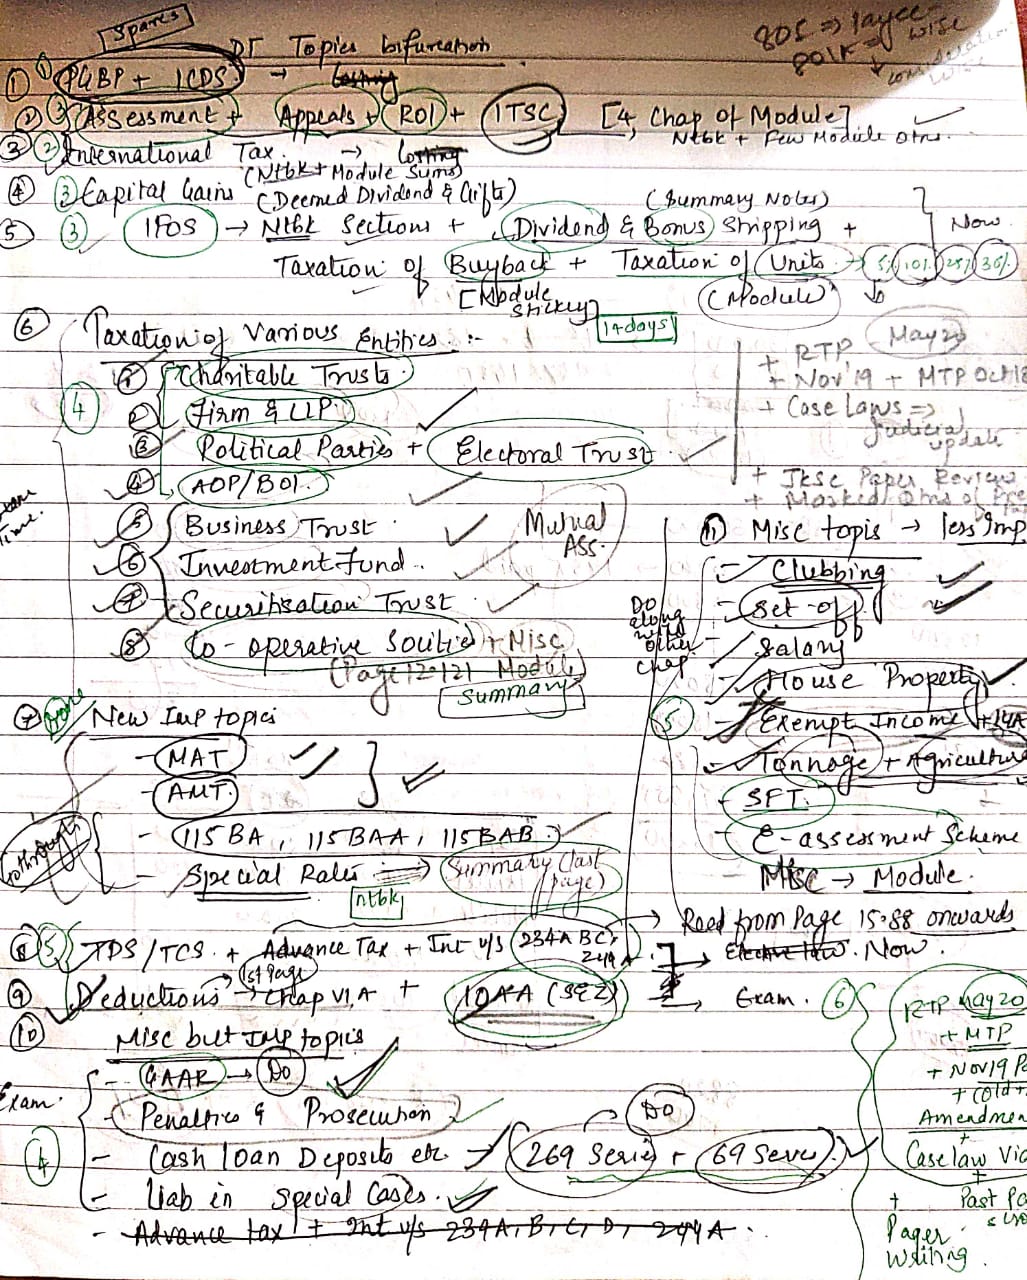 Spares
DT Topics bifurcation
80S => layee wise
801K =>
consideration wise
① ① PGBP + ICDS →
② ③ Assessment + Appeals + ROI + ITSC [4 Chap of Module]
Ntbk + Few Module Qtns.
③ ② International Tax. →
(Ntbk + Module Sums)
④ ③ Capital Gains (Deemed Dividend & Gifts)
(Summary Notes)
⑤ ③ IFOS → Ntbk Sections + Dividend & Bonus Stripping +
Now
Taxation of Buyback + Taxation of Units → 5% 10% 25% 30%
[Module Stickey]
(Module)
⑥ Taxation of Various Entities :-
14 days
④
① Charitable Trusts
② Firm & LLP
③ Political Parties + Electoral Trust
④ AOP/BOI.
⑤ Business Trust
Mutual Ass.
⑥ Investment Fund.
⑦ Securitisation Trust
⑧ Co-operative Soutied + Misc
(Page 12.121 Module)
Summary
May 20
+ RTP
+ Nov'19 + MTP Oct 18
+ Case Laws =>
Judicial update
+ Jksc Paper Review
+ Marked Qtns of
⑪ Misc topis → less Imp
Do along with other chap.
- Clubbing
- Set-off
- Salary
- House Property
⑤
- Exempt Income + 14A
- Tonnage + Agriculture
- SFT.
- E-assessment Scheme
Misc → Module.
⑦ Done New Imp topics
- MAT
- AMT.
- 115 BA, 115 BAA, 115 BAB.
- Special Rates => Summary (last page)
ntbk
→ Read from Page 15.88 onwards
⑧ ⑤ TDS/TCS. + Advance Tax + Int u/s (234A BC, 244A.
→ Elective law. Now.
1st Page
⑨ Deductions → Chap VI A + 10AA (SEZ)
→ Exam.
⑥
⑩ Misc but Imp topics
Exam.
④
- GAAR → Do
- Penalties & Prosecution
Do
- Cash loan Deposits etc → (269 Series + 69 Series).
- Liab in Special Cases.
- Advance tax + Int u/s 234A, B, C, D, 244A.
RTP May 20
+ MTP
+ Nov 19
+ (Old +
Amendmen
+
Case law Vid
+
Past Pa
+
Paper Writing.